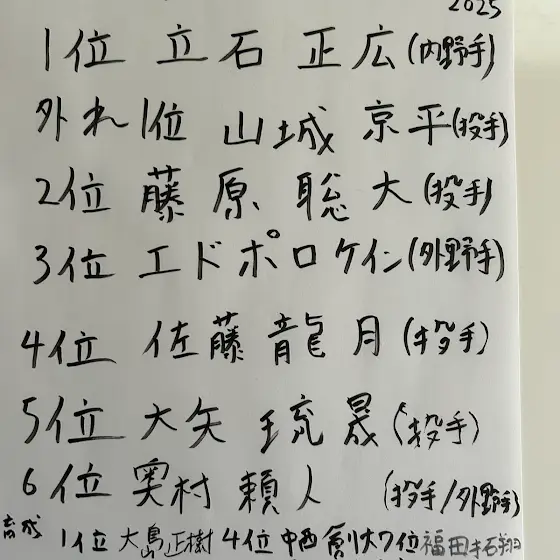 2025
1位 立石 正広(内野手)
外れ1位 山城 京平(投手)
2位 藤原 聡大(投手)
3位 エドポロケイン(外野手)
4位 佐藤 龍月(投手)
5位 大矢 琉晟(投手)
6位 奥村 頼人 (投手/外野手)
育成
1位 大島正樹 4位 中西創大 7位 福田拓翔